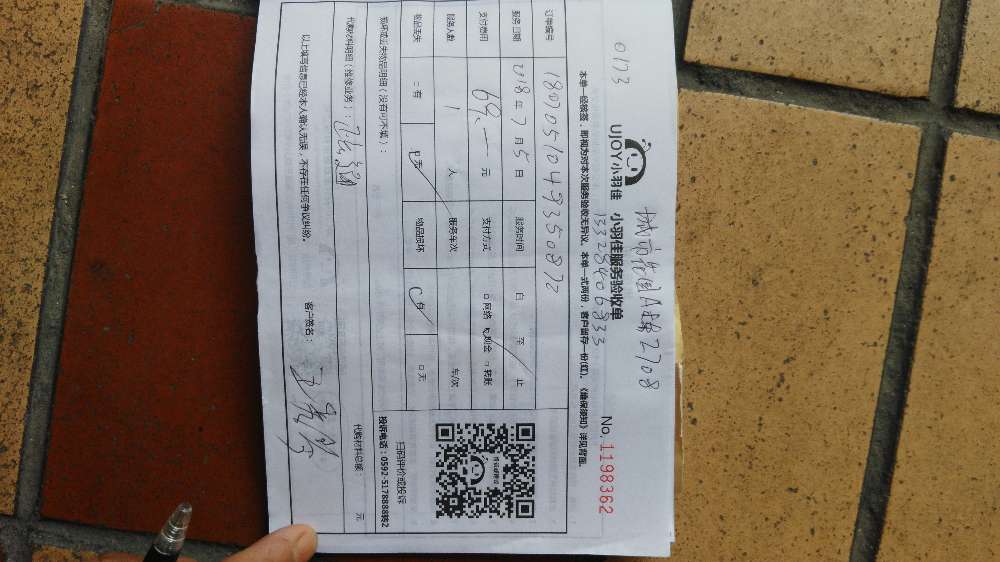 0173
城市花园A栋2708
UJOY小羽佳 小羽佳服务验收单
13328406833
No. 1198362
本单一经签签,即视为对本次服务验收无异议。本单一式两份,客户留存一份(红)。《维保须知》详见背面。
订单编号 1807051049350872
服务日期 2018 年 7 月 5 日 服务时间 自 至 止
支付费用 69.— 元 支付方式 □ 网络 □ 现金 □ 转账
服务人数 1 人 服务车次 车/次
物品丢失 □ 有 □ 无 物品损坏 □ 有 □ 无
扫码评价或投诉
损坏或丢失物品明细(没有可不填):
投诉电话:0592-5178888转2
代购材料明细(维修业务):
代购材料总额: 元
以上填写信息已经本人确认无误,不存在任何争议纠纷。 客户签名: